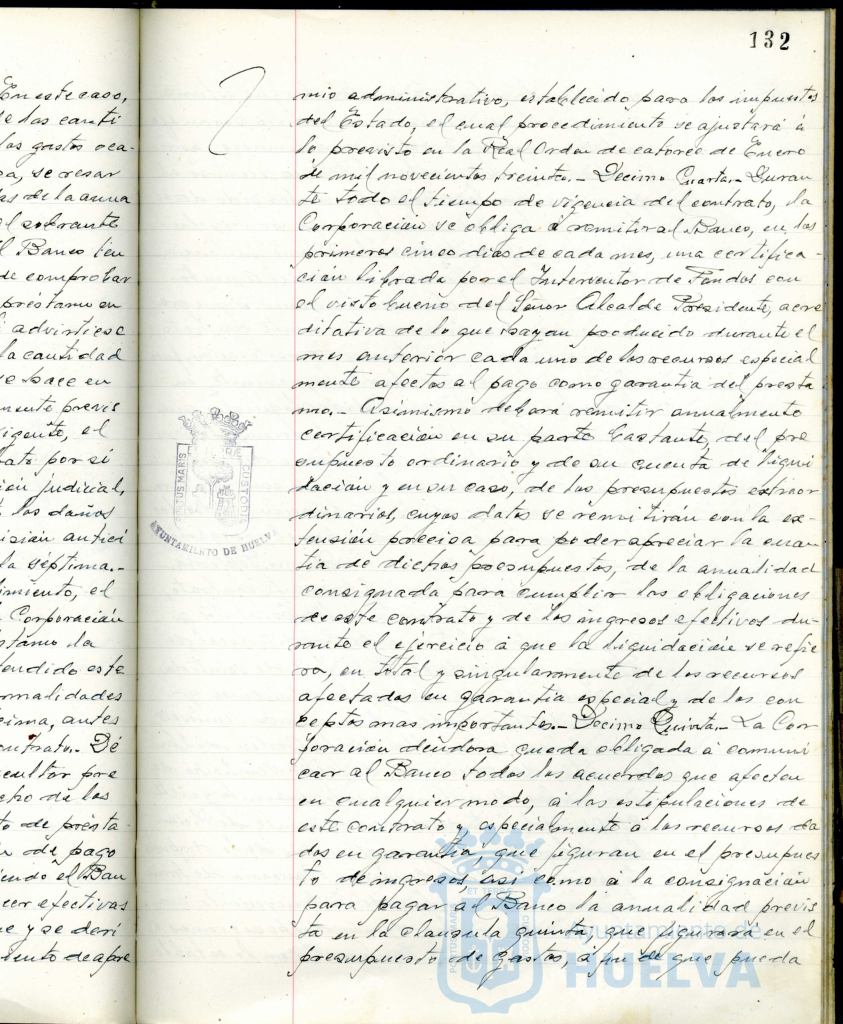 132
En este caso,
e las canti
los gastos oca
a, se resar
as de la anua
el sobrante
l Banco ten
de comprobar
préstamo en
i advirtiese
la cantidad
se hace en
mente previs
igente, el
ato por sí
ión judicial,
los daños
isián antici
la séptima.-
imiento, el
Corporación
stamo la
tendido este
rmalidades
cima, antes
ontrato.- Dé
cultor pre
cho de los
to de présta-
de pago
iendo el Ban
cer efectivas
e y se deri
miento de apre
mio administrativo, establecido para los impuestos
del Estado, el cual procedimiento se ajustará á
lo previsto en la Real Orden de catorce de Enero
de mil novecientos treinta.- Decimo Cuarta.- Duran
te todo el tiempo de vigencia del contrato, la
Corporación se obliga á remitir al Banco, en los
primeros cinco dias de cada mes, una certifica-
ción librada por el Interventor de Fondos con
el visto bueno del Señor Alcalde Presidente, acre
ditativa de lo que hayan producido durante el
mes anterior cada uno de los recursos especial
mente afectos al pago como garantia del presta
mo.- Asimismo deberá remitir anualmente
certificación en su parte bastante, del pre
supuesto ordinario y de su cuenta de liqui
dación y en su caso, de los presupuestos extraor
dinarios, cuyos datos se remitirán con la ex-
tensión precisa para poder apreciar la cuan
tia de dichos presupuestos, de la anualidad
consignada para cumplir las obligaciones
de este contrato y de los ingresos efectivos du-
rante el ejercicio á que la liquidación se refie
ra, en total y singularmente de los recursos
afectados en garantia especial y de los con
ceptos mas importantes.- Decimo Quinta.- La Cor
poración deudora queda obligada á comuni
car al Banco todos los acuerdos que afecten
en cualquier modo, á las estipulaciones de
este contrato y especialmente á los recursos da
dos en garantia, que figuran en el presupues
to de ingresos asi como á la consignación
para pagar al Banco la anualidad previs
ta en la clausula quinta, que figurará en el
presupuesto de gastos, á fin de que pueda
PORTUS MARIS
CUSTODIA
AYUNTAMIENTO DE HUELVA
Ayuntamiento de
HUELVA